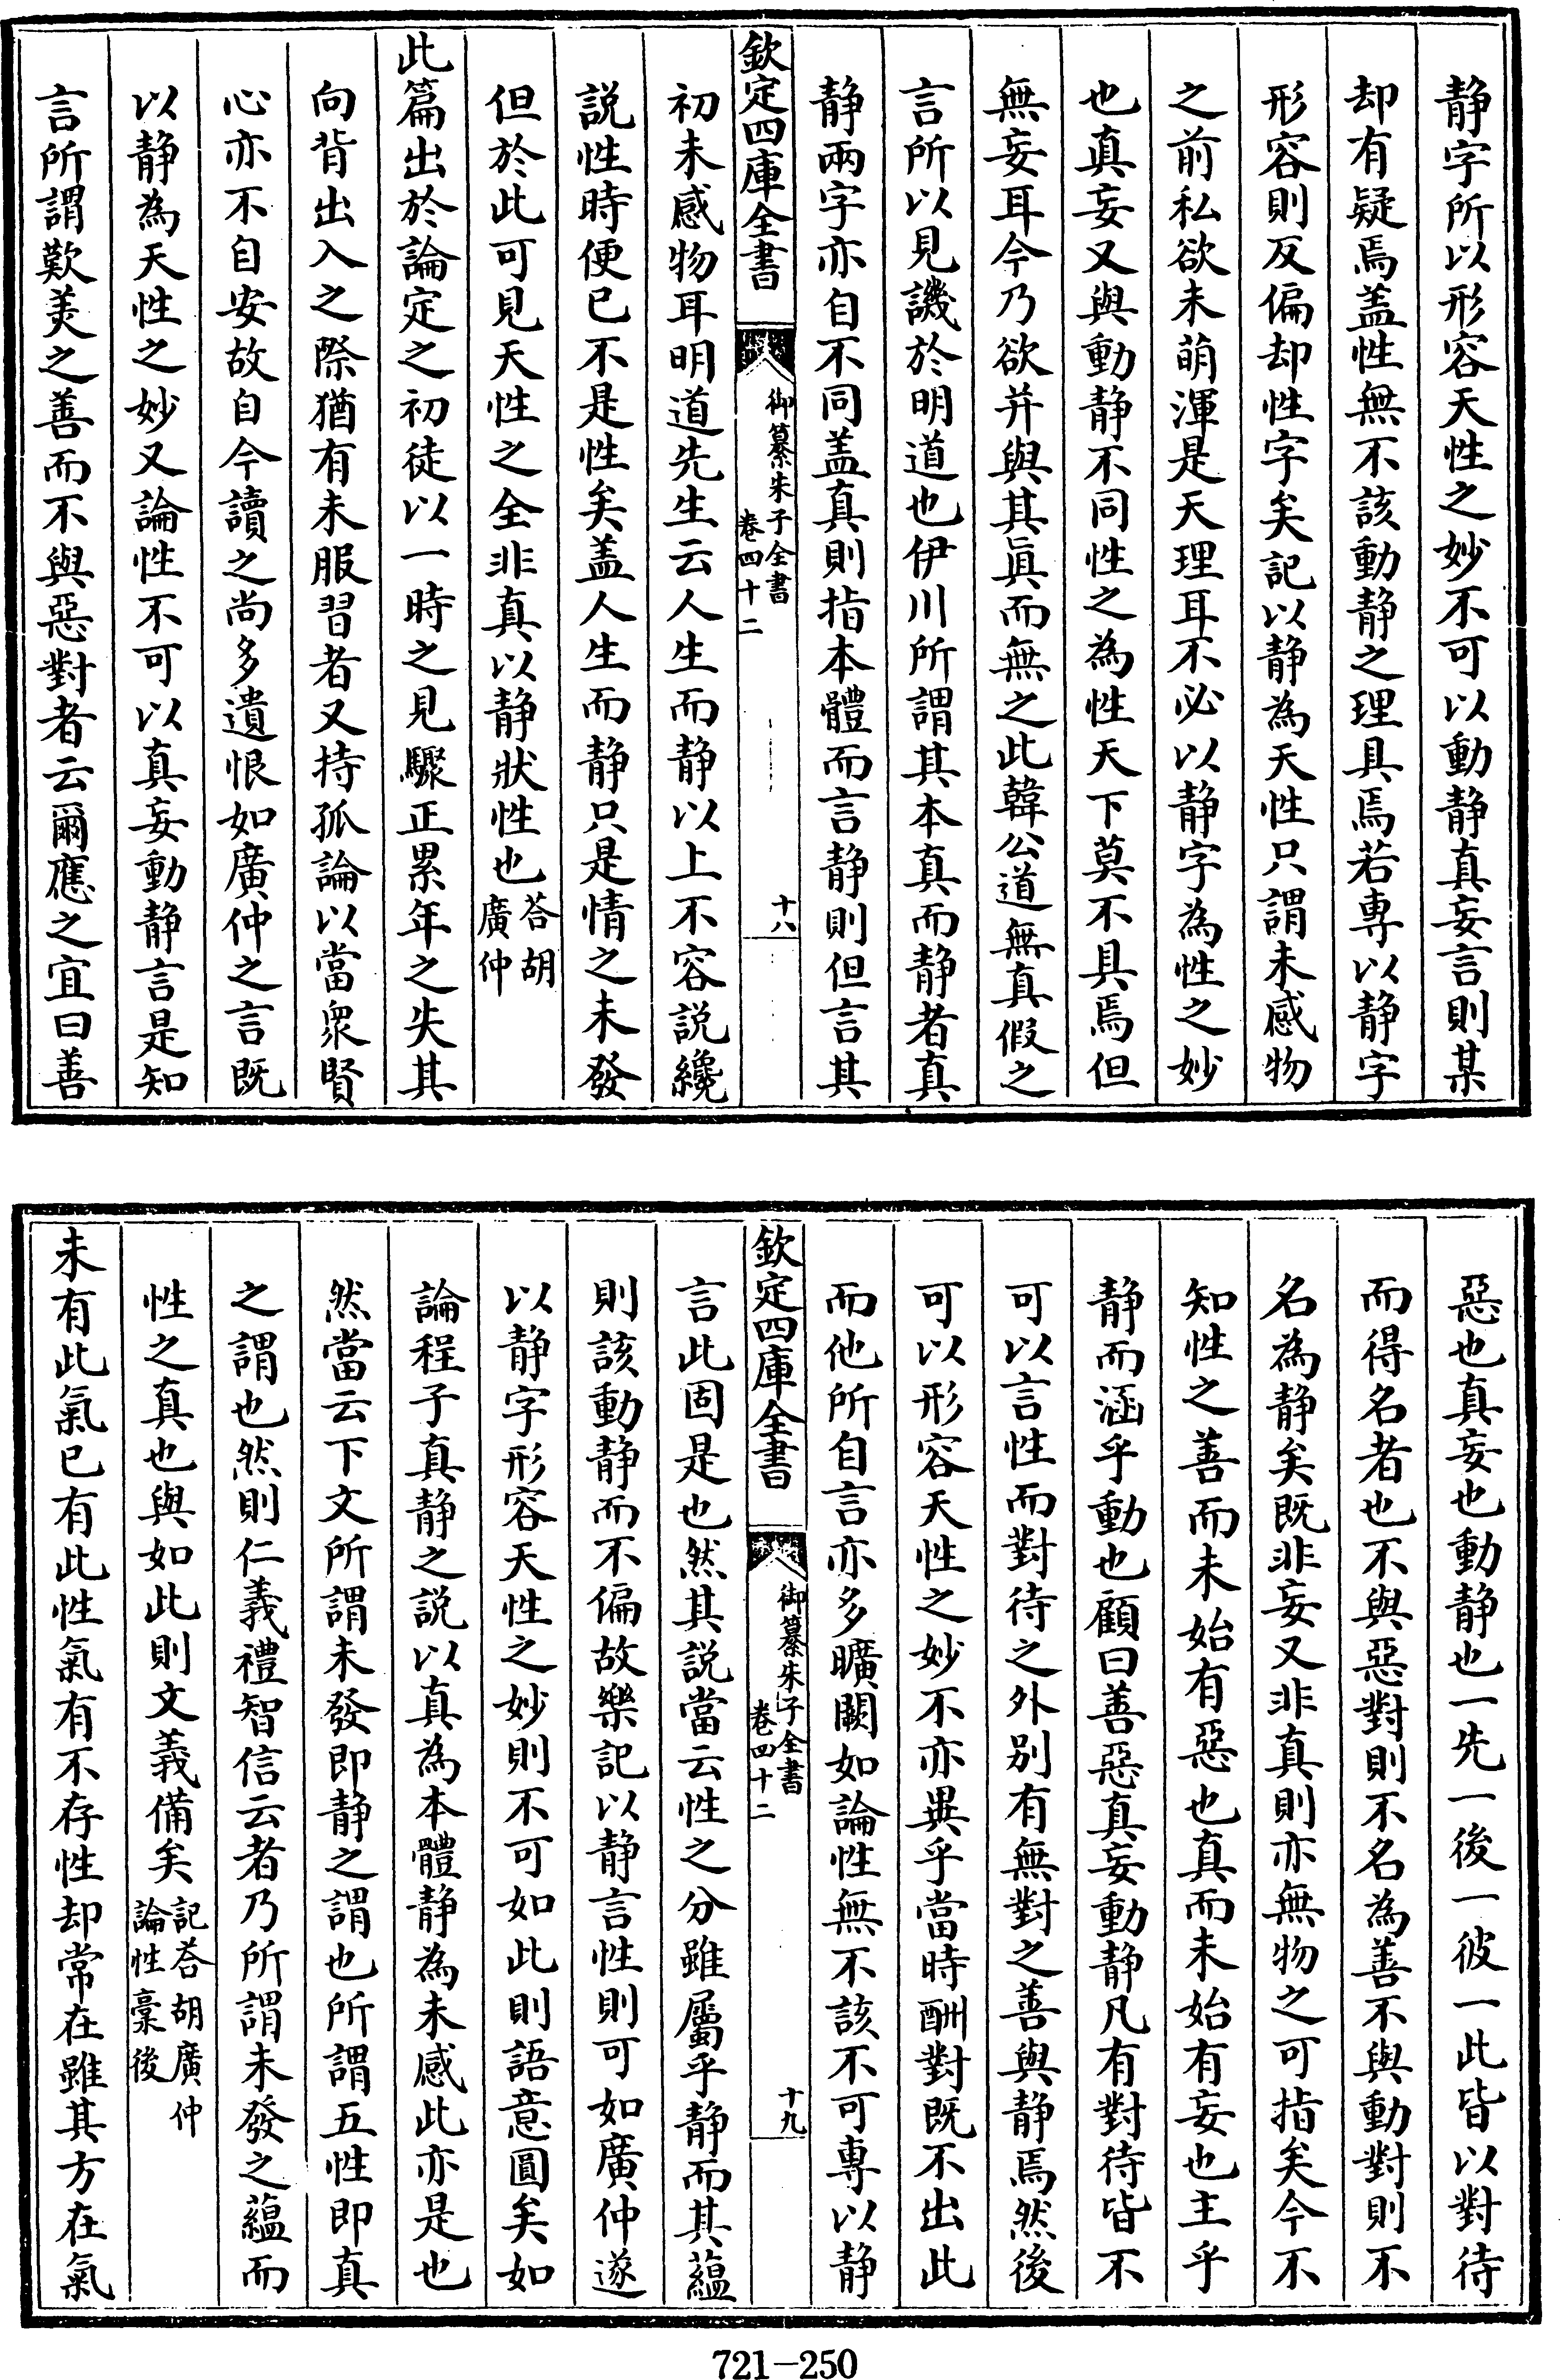 静字所以形容天性之妙不可以動静真妄言則某
却有疑焉盖性無不該動静之理具焉若専以静字
形容則反偏却性字矣記以静為天性只謂未感物
之前私欲未萌渾是天理耳不必以静字為性之妙
也真妄又與動静不同性之為性天下莫不具焉但
無妄耳今乃欲并與其真而無之此韓公道無真假之
言所以見譏於明道也伊川所謂其本真而静者真
静兩字亦自不同盖真則指本體而言静則但言其
欽定四庫全書
御纂朱子全書
卷四十二
十八
初未感物耳明道先生云人生而静以上不容説纔
説性時便已不是性矣盖人生而静只是情之未發
但於此可見天性之全非真以静狀性也答胡
廣仲
此篇出於論定之初徒以一時之見驟正累年之失其
向背出入之際猶有未服習者又持孤論以當衆賢
心亦不自安故自今讀之尚多遺恨如廣仲之言既
以静為天性之妙又論性不可以真妄動静言是知
言所謂歎美之善而不與惡對者云爾應之宜曰善
惡也真妄也動静也一先一後一彼一此皆以對待
而得名者也不與惡對則不名為善不與動對則不
名為静矣既非妄又非真則亦無物之可指矣今不
知性之善而未始有惡也真而未始有妄也主乎
静而涵乎動也顧曰善惡真妄動静凡有對待皆不
可以言性而對待之外别有無對之善與静焉然後
可以形容天性之妙不亦異乎當時酬對既不出此
而他所自言亦多曠闕如論性無不該不可専以静
欽定四庫全書
御纂朱子全書
卷四十二
十九
言此固是也然其説當云性之分雖屬乎静而其蘊
則該動静而不偏故樂記以静言性則可如廣仲遂
以静字形容天性之妙則不可如此則語意圓矣如
論程子真静之説以真為本體静為未感此亦是也
然當云下文所謂未發即静之謂也所謂五性即真
之謂也然則仁義禮智信云者乃所謂未發之蘊而
性之真也與如此則文義備矣記答胡廣仲
論性稾後
未有此氣已有此性氣有不存性却常在雖其方在氣
721-250